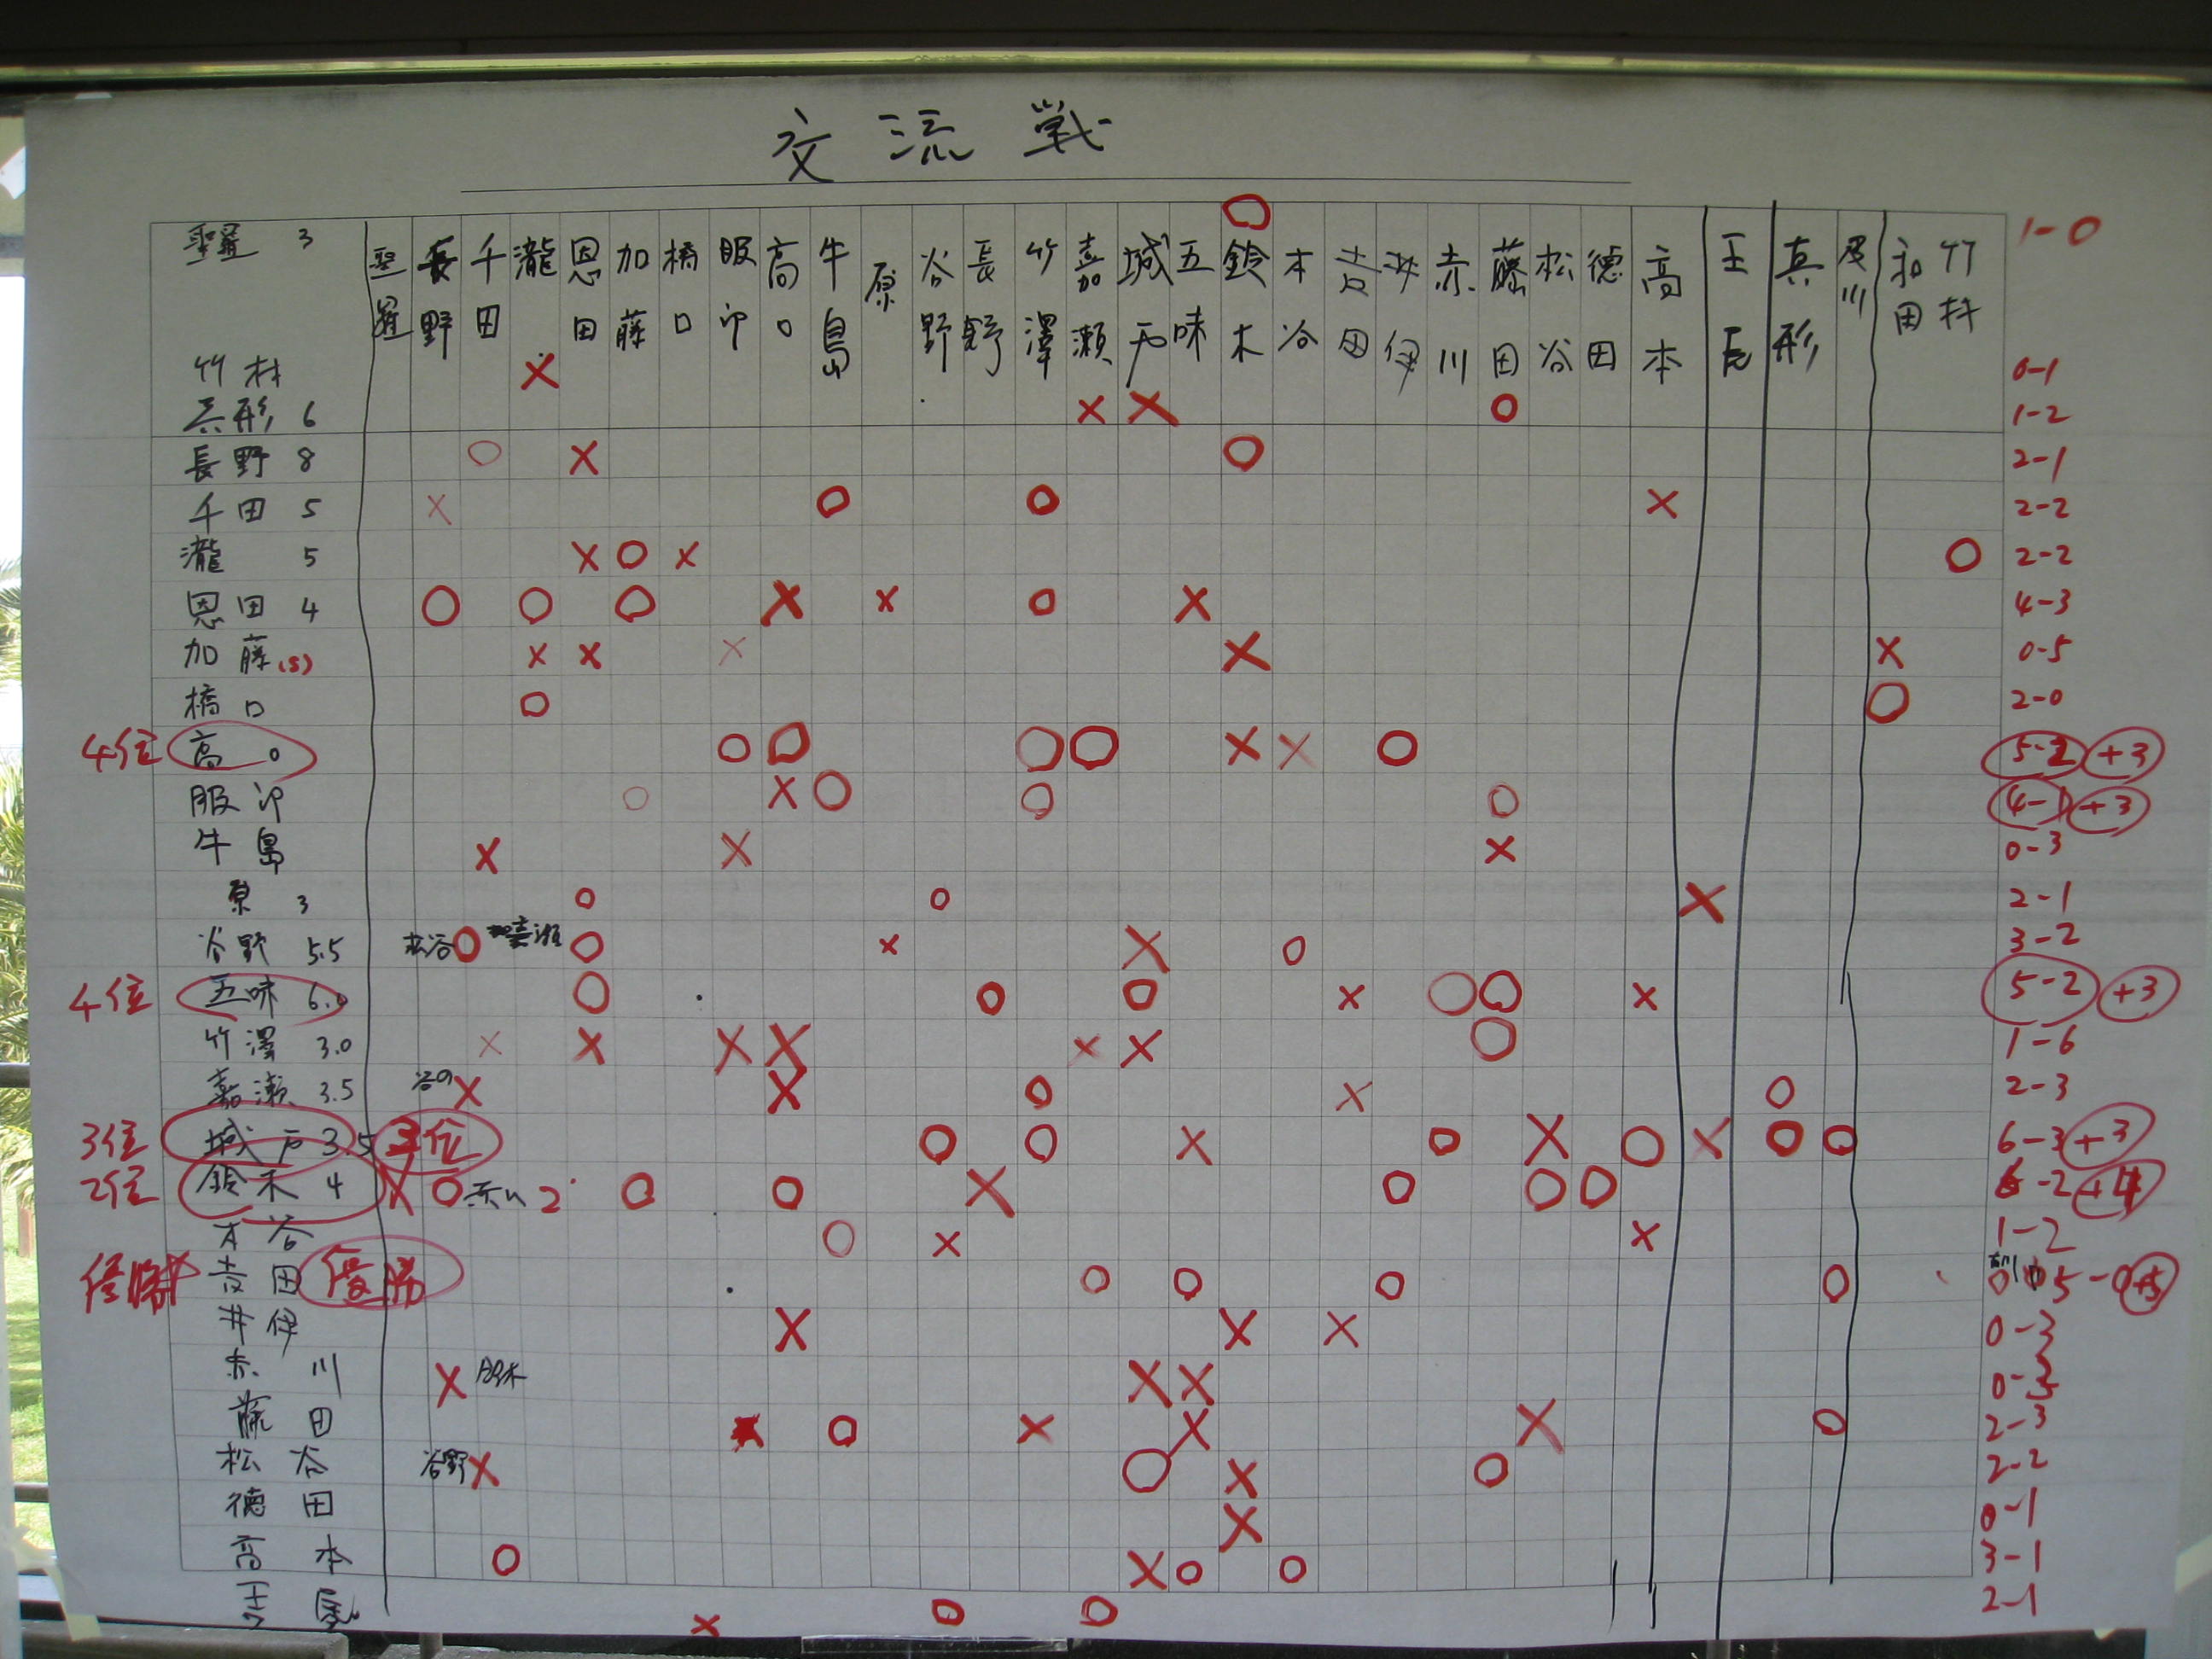 交流戦
聖羅 長野 千田 瀧 恩田 加藤 橋口 服卬 高口 牛島 原 谷野 長野 竹澤 嘉瀬 城戸 五味 鈴木 本谷 吉田 井伊 赤川 藤田 松谷 徳田 高本 王 真形 及川 和田 竹村
聖羅 3 ○ 1-0
竹村 × 0-1
兵形 6 × × ○ 1-2
長野 8 ○ × ○ 2-1
千田 5 × ○ ○ × 2-2
瀧 5 × ○ × ○ 2-2
恩田 4 ○ ○ ○ × × ○ × 4-3
加藤(5) × × × × × 0-5
橋口 ○ ○ 2-0
4位 高口 ○ ○ ○ ○ × × ○ 5-2 +3
服卬 ○ × ○ ○ ○ 4-1 +3
牛島 × × × 0-3
原 3 ○ ○ × 2-1
谷野 5.5 松谷 ○ 嘉瀬 ○ × × ○ 3-2
4位 五味 6.0 ○ ○ ○ × ○ ○ × 5-2 +3
竹澤 3.0 × × × × × × ○ 1-6
嘉瀬 3.5 谷の × × ○ × ○ 2-3
3位 城戸 3.5 3位 ○ ○ × ○ × ○ × ○ ○ 6-3 +3
2位 鈴木 4 × ○ 赤川 2 ○ ○ × ○ ○ ○ 6-2 +4
本谷 ○ × × 1-2
優勝 吉田 優勝 ○ ○ ○ ○ 5-0 +5
井伊 × × × 0-3
赤川 × 鈴木 × × 0-3
藤田 ○ × × × ○ 2-3
松谷 谷野 × ○ × ○ 2-2
徳田 × 0-1
高本 ○ × ○ ○ 3-1
王 × ○ ○ 2-1